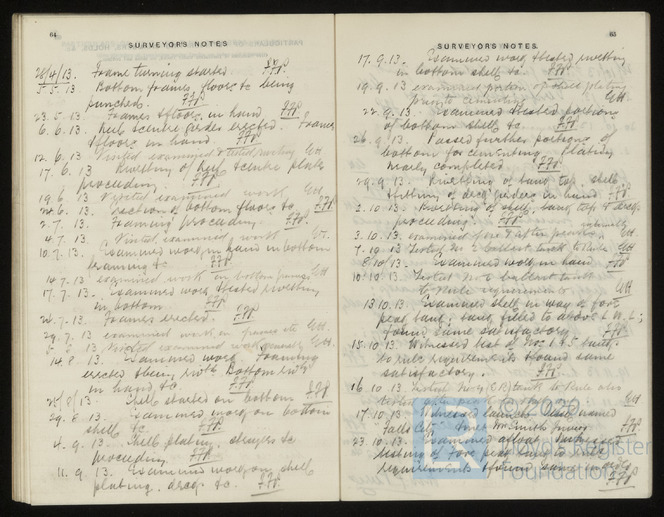 64
SURVEYOR'S NOTES
28/4/13. Frame turning started. F.F.P.
5.5.13 Bottom frames, floors &c being
punched. F.F.P.
23.5.13. Frames & floors in hand F.F.P.
6.6.13. Keel & centre girder erected. Frames
& floors in hand F.F.P.
12.6.13 Visited examined & tested riveting GH
17.6.13 Riveting of keel & centre plate
proceeding. F.F.P.
19.6.13 Visited examined work GH
24.6.13. Erection of bottom floors &c F.F.P.
2.7.13. Framing proceeding F.F.P.
4.7.13 Visited examined work GH
10.7.13. Examined work in hand in bottom
framing &c F.F.P.
14.7.13 examined work in bottom framing GH
17.7.13. Examined work & tested riveting
in bottom F.F.P.
24.7.13. Frames erected. F.F.P.
29.7.13 examined work in frames etc GH
13 Visited examined work generally GH
14.8.13. Examined work. Framing
erected & being riv'td. Bottom riv'tg
in hand &c. F.F.P.
25/8/13. Shell started on bottom F.F.P.
29.8.13. Examined work on bottom
shell &c. F.F.P.
4.9.13. Shell plating, stringers &c
proceeding F.F.P.
11.9.13. Examined work on shell
plating, decks &c. F.F.P.
65
SURVEYOR'S NOTES.
17.9.13. Examined work & tested riveting
in bottom shell &c F.F.P.
19.9.13 examined portion of shell plating
prior to cementing GH
22.9.13. Examined & tested portions
of bottom shell &c. F.F.P.
26.9.13. Passed further portions of
bottom for cementing, plating
nearly completed. F.F.P.
29.9.13. Riveting of tank top, shell
& fitting of deck girders in hand. F.F.P.
2.10.13. Riveting of shell, tank top & decks
proceeding. F.F.P.
3.10.13. examined fore & after peaks GH
7.10.13 Tested No 2 ballast tank to Rule GH
8/10/13 Examined work in hand F.F.P.
10.10.13. Tested No ballast tank
to Rule requirements GH
13.10.13. Examined shell in way of fore
peak tank, tank filled to above L.W.L;
found same satisfactory. F.F.P.
15.10.13. Witnessed test of Nos. 1 & 5 tanks
to rule requirements & found same
satisfactory. F.F.P.
16.10.13. Tested tank to Rule also
tested GH
17.10.13 Witnessed launch. Vessel named
"Falls City" Owner Wm Smith F.F.P.
23.10.13. Examined afloat. Witnessed
testing of Fore peak tank to rule
requirements & found same in order
F.F.P.
© 2020
Lloyd's Register
Foundation